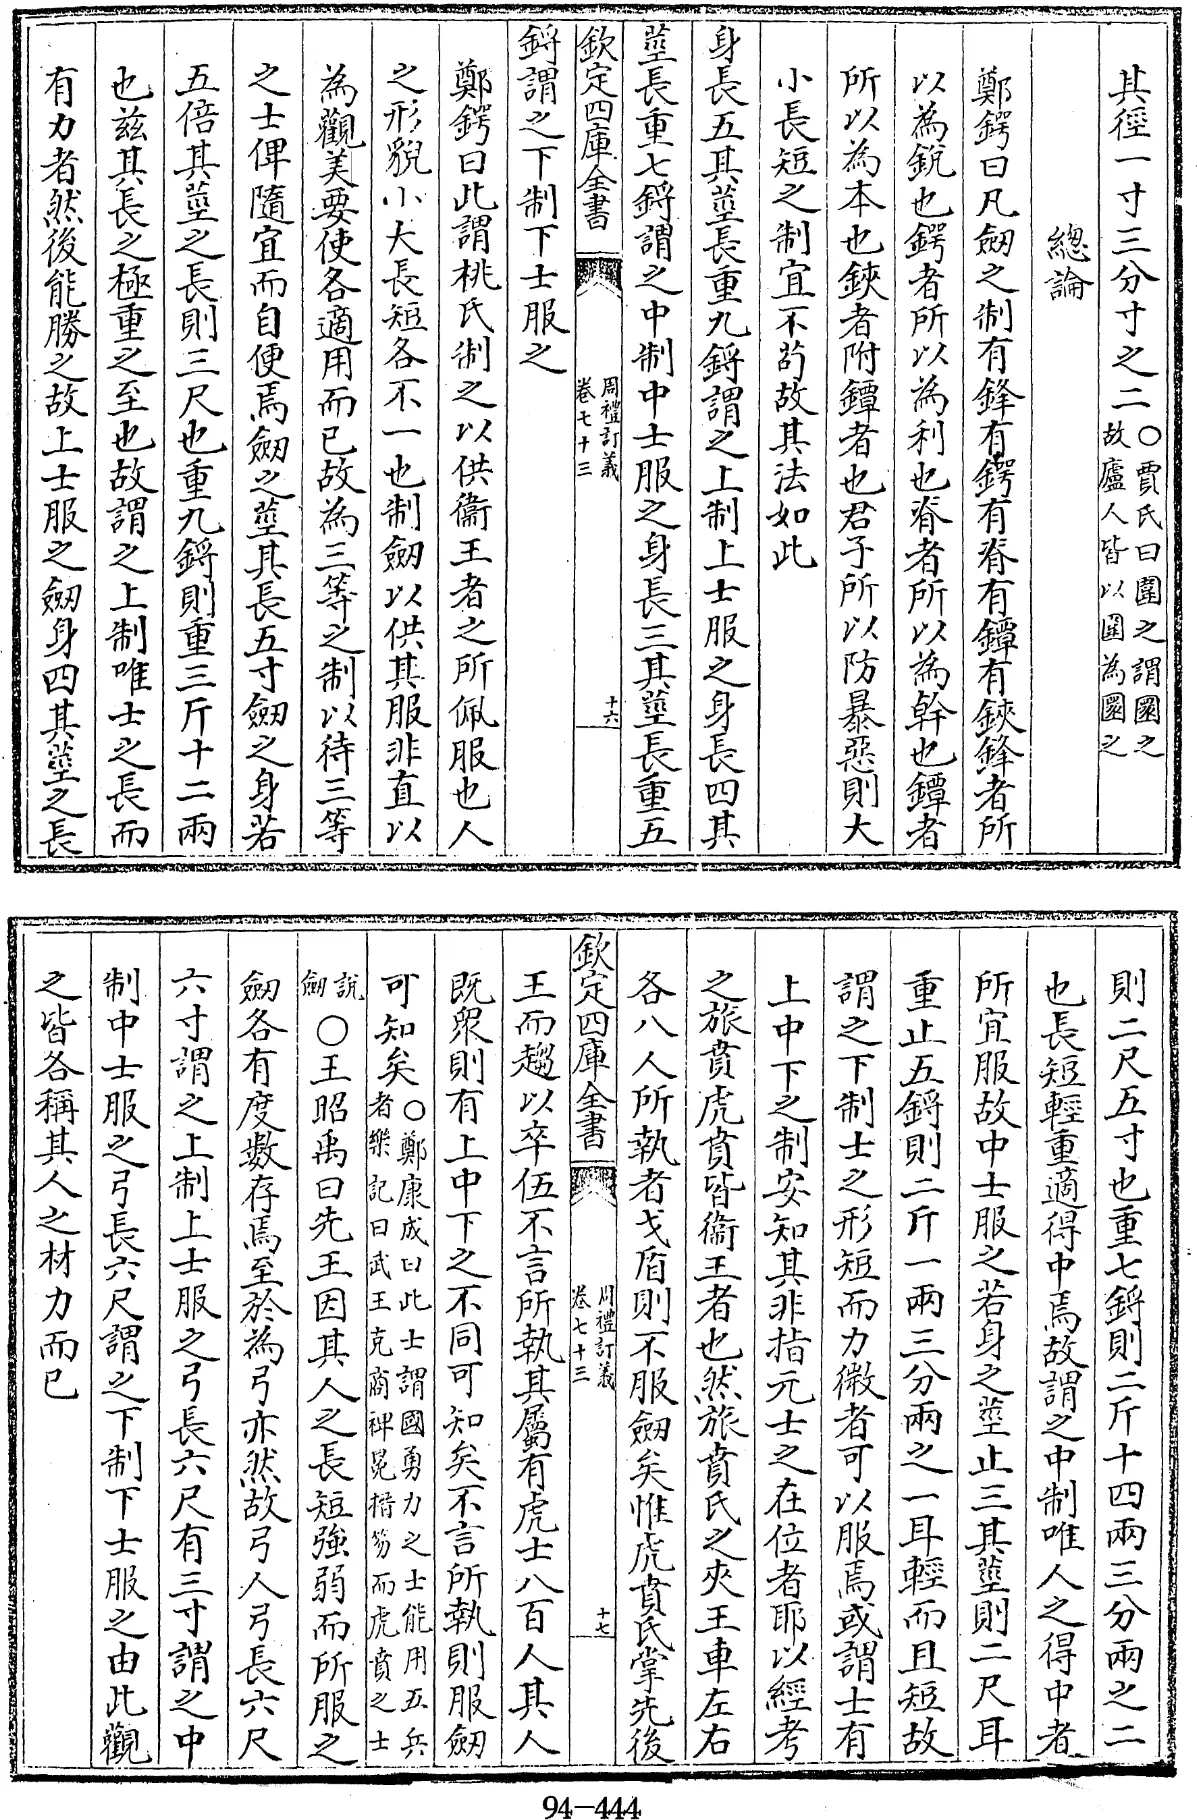 其徑一寸三分寸之二〇賈氏曰圍之謂圜之故廬人皆以圍為圜之
總論
鄭鍔曰凡劒之制有鋒有鍔有脊有鐔有鋏鋒者所
以為銳也鍔者所以為利也脊者所以為幹也鐔者
所以為本也鋏者附鐔者也君子所以防暴惡則大
小長短之制宜不茍故其法如此
身長五其莖長重九鋝謂之上制上士服之身長四其
莖長重七鋝謂之中制中士服之身長三其莖長重五
欽定四庫全書
周禮訂義
卷七十三
十六
鋝謂之下制下士服之
鄭鍔曰此謂桃氏制之以供衞王者之所佩服也人
之形貌小大長短各不一也制劒以供其服非直以
為觀美要使各適用而已故為三等之制以待三等
之士俾隨宜而自便焉劒之莖其長五寸劒之身若
五倍其莖之長則三尺也重九鋝則重三斤十二兩
也兹其長之極重之至也故謂之上制唯士之長而
有力者然後能勝之故上士服之劒身四其莖之長
則二尺五寸也重七鋝則二斤十四兩三分兩之二
也長短輕重適得中焉故謂之中制唯人之得中者
所宜服故中士服之若身之莖止三其莖則二尺耳
重止五鋝則二斤一兩三分兩之一耳輕而且短故
謂之下制士之形短而力微者可以服焉或謂士有
上中下之制安知其非指元士之在位者耶以經考
之旅賁虎賁皆衞王者也然旅賁氏之夾王車左右
各八人所執者戈盾則不服劒矣惟虎賁氏掌先後
欽定四庫全書
周禮訂義
卷七十三
十七
王而趨以卒伍不言所執其屬有虎士八百人其人
既衆則有上中下之不同可知矣不言所執則服劒
可知矣〇鄭康成曰此士謂國勇力之士能用五兵者樂記曰武王克商裨冕搢笏而虎賁之士
說劒〇王昭禹曰先王因其人之長短強弱而所服之
劒各有度數存焉至於為弓亦然故弓人弓長六尺
六寸謂之上制上士服之弓長六尺有三寸謂之中
制中士服之弓長六尺謂之下制下士服之由此觀
之皆各稱其人之材力而已
94-444